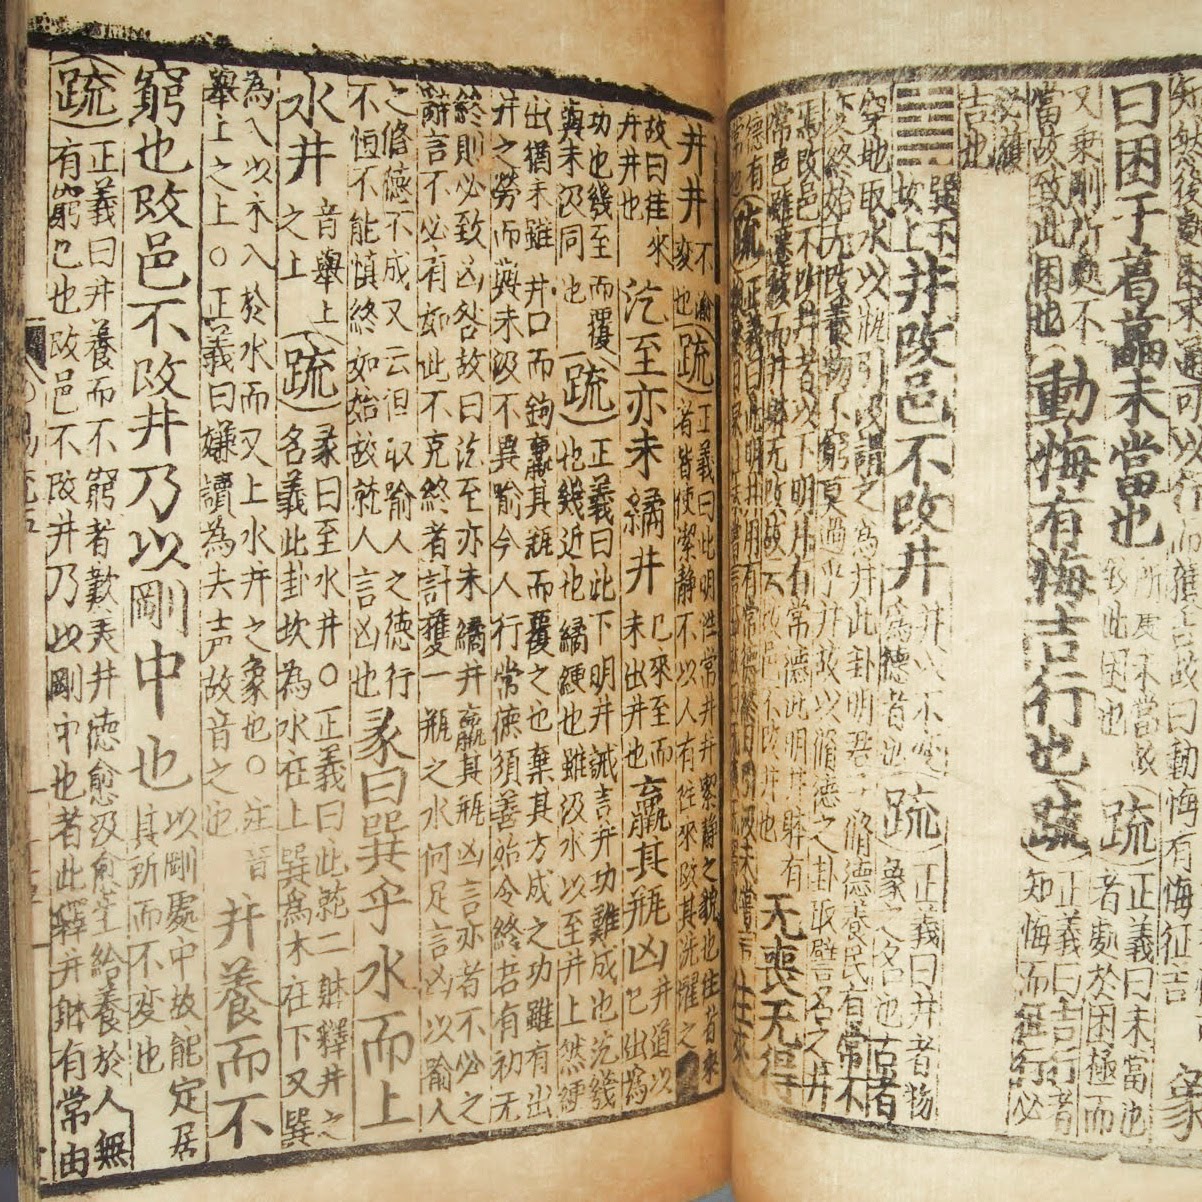 知然後處困求通可以行而獲吉故曰動悔有悔征吉 象
曰困于葛藟未當也 所處不當故致此困也 疏 正義曰未當也者處於困極而
又乘剛所處不當故致此困也 動悔有悔吉行也 疏 正義曰吉行者知悔而征行必
須獲吉也
䷯ 巽下坎上 井改邑不改井 井以不變為德者也 疏 正義曰井者物象之名也古者
穿地取水以瓶引汲謂之為井此卦明君子脩德養民有常不
變終始无改養物不窮莫過乎井故以脩德之卦取譬名之井
焉改邑不改井者以下明井有常德此明井體有常邑雖遷移而井體无改故云改邑不改井也 无喪无得
德有常也 疏 正義曰此明井用有常德終日引汲未嘗言 往來
井井 不渝變也 疏 正義曰此明性常井井絜靜之貌也往者來者皆使潔靜不以人有往來改其洗濯之
故曰往來井井也 汔至亦未繘井 已來至而未出井也 羸其瓶凶 井道以已出為
功也幾至而覆與未汲同也 疏 正義曰此下明井誡言井功難成也汔幾也幾近也繘綆也雖汲水以至井上然綆
出猶未離井口而鉤羸其瓶而覆之也棄其方成之功雖有出
井之勞而與未汲不異喻今人行常德須善始令終若有初无
終則必致凶咎故曰汔至亦未繘井羸其瓶凶言亦者不必之
辭言不必有如此不克終者計獲一瓶之水何足言凶以喻人
之脩德不成又云但取喻人之德行不恒不能慎終如始故就人言凶也 彖曰巽乎水而上
水井 音舉上之上 疏 彖曰至水井○正義曰此就二體釋井之名義此卦坎為水在上巽為木在下又巽
為入以木入於水而又上水井之象也○注音舉上之上○正義曰嫌讀為去聲故音之也 井養而不
窮也改邑不改井乃以剛中也 以剛處中故能定居其所而不變也
疏 正義曰井養而不窮者歎美井德愈汲愈生給養於人無有窮已也改邑不改井乃以剛中也者此釋井體有常由